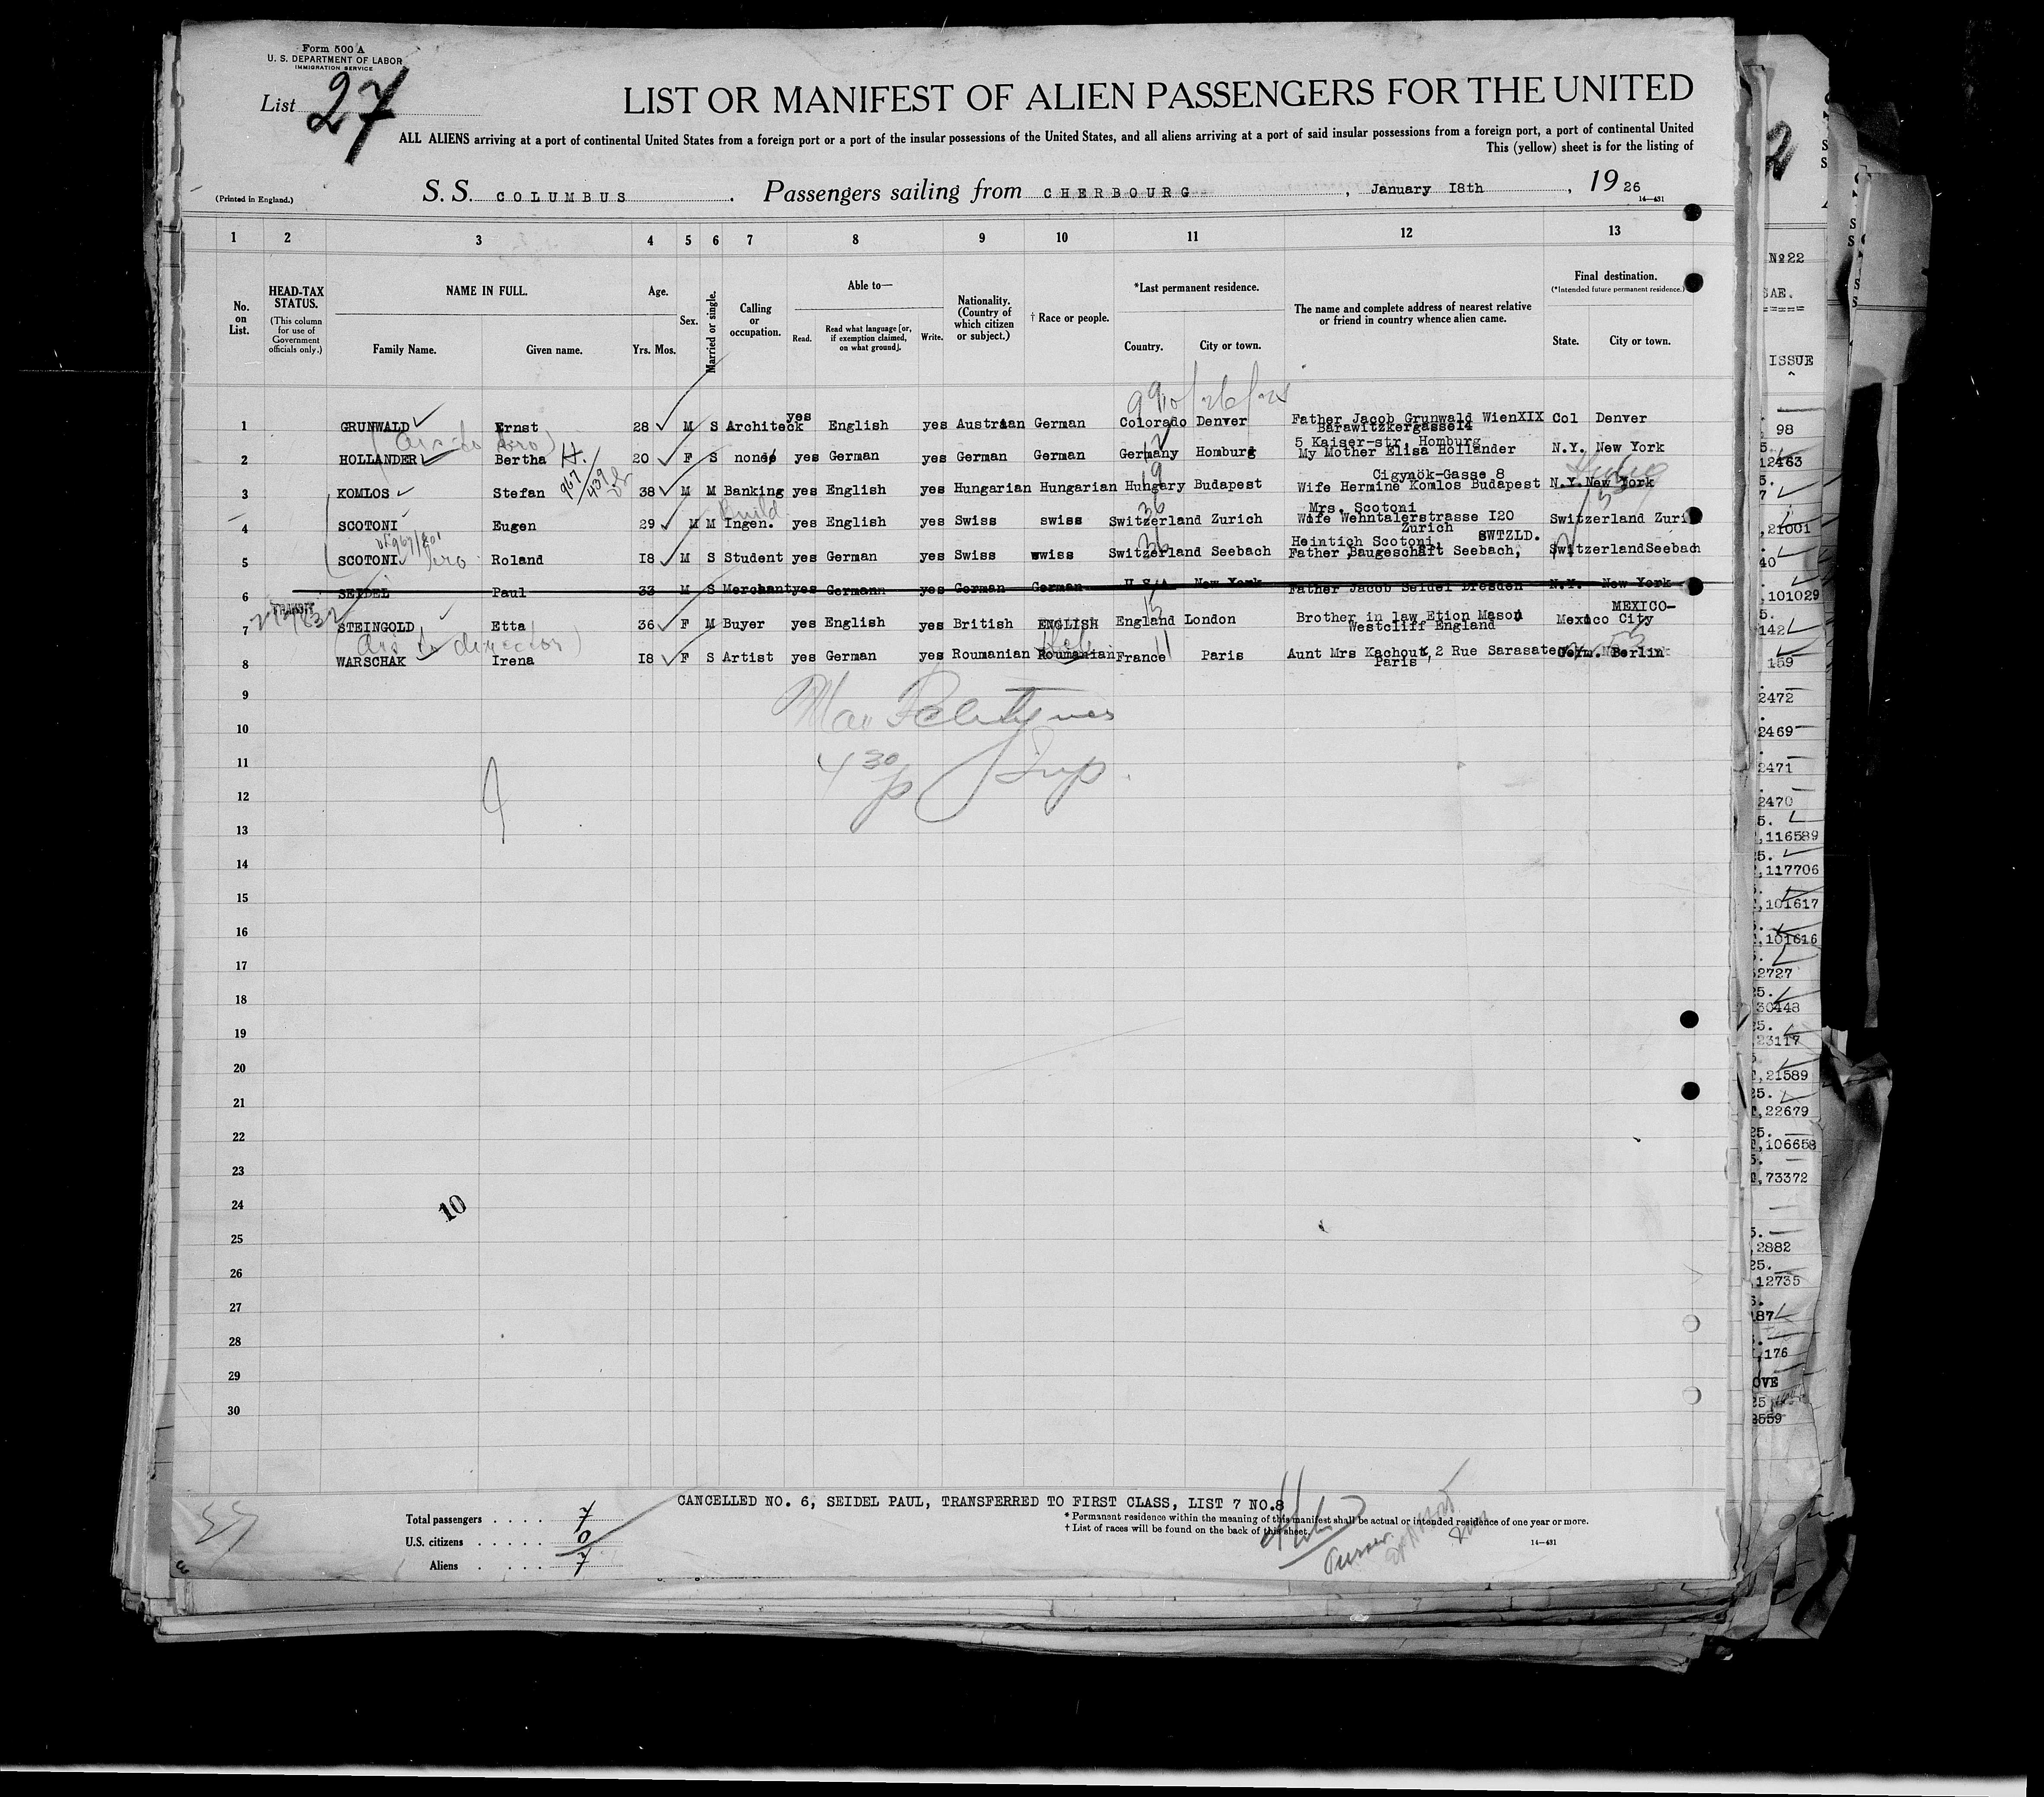 Form 500 A
U. S. DEPARTMENT OF LABOR
IMMIGRATION SERVICE
List 27
LIST OR MANIFEST OF ALIEN PASSENGERS FOR THE UNITED
ALL ALIENS arriving at a port of continental United States from a foreign port or a port of the insular possessions of the United States, and all aliens arriving at a port of said insular possessions from a foreign port, a port of continental United
This (yellow) sheet is for the listing of
(Printed in England.)
S. S. COLUMBUS. Passengers sailing from CHERBOURG, January 18th, 1926
14—431
1 2 3 4 5 6 7 8 9 10 11 12 13
No. on List.
HEAD-TAX STATUS. (This column for use of Government officials only.)
NAME IN FULL.
Family Name. Given name.
Age.
Yrs. Mos.
Sex.
Married or single.
Calling or occupation.
Able to—
Read. Read what language [or, if exemption claimed, on what ground]. Write.
Nationality. (Country of which citizen or subject.)
† Race or people.
*Last permanent residence.
Country. City or town.
The name and complete address of nearest relative or friend in country whence alien came.
Final destination.
(*Intended future permanent residence.)
State. City or town.
1 GRUNWALD Ernst 28 M S Architeck yes English yes Austrian German Colorado Denver Father Jacob Grunwald WienXIX Barawitzkergasse14 Col Denver
2 HOLLANDER Bertha H. 20 F S none yes German yes German German Germany Homburg 5 Kaiser-str, Homburg My Mother Elisa Hollander N.Y. New York
3 KOMLOS Stefan 38 M M Banking yes English yes Hungarian Hungarian Hungary Budapest Cigymök-Gasse 8 Wife Hermine Komlos Budapest N.Y. New York
4 SCOTONI Eugen 29 M M Build Ingen. yes English yes Swiss swiss Switzerland Zurich Mrs. Scotoni Wife Wehntalerstrasse 120 Zurich Switzerland Zuri
5 SCOTONI Roland 18 M S Student yes German yes Swiss swiss Switzerland Seebach Heintich Scotoni, SWTZLD. Father Baugeschäft Seebach, SwitzerlandSeebach
6 SEIDEL Paul 33 M S Merchant yes Germann yes German German U S A New York Father Jacob Seidel Dresden N.Y. New York
TRANSIT
7 STEINGOLD Etta 36 F M Buyer yes English yes British ENGLISH England London Brother in law Etion Mason Westcliff England Mexico MEXICO- City
8 WARSCHAK Irena 18 F S Artist yes German yes Roumanian Roumanian France Paris Aunt Mrs Kachouk, 2 Rue Sarasate Paris Germ. Berlin
9
10
11
12
13
14
15
16
17
18
19
20
21
22
23
24
25
26
27
28
29
30
4 30 p
10
CANCELLED NO. 6, SEIDEL PAUL, TRANSFERRED TO FIRST CLASS, LIST 7 NO.8
Total passengers 7
U.S. citizens 0
Aliens 7
* Permanent residence within the meaning of this manifest shall be actual or intended residence of one year or more.
† List of races will be found on the back of this sheet.
14—431
№22
SAE.
ISSUE
98
12463
21001
40
101029
142
159
2472
2469
2471
2470
116589
117706
101617
101616
52727
30448
23117
21589
22679
106658
73372
2882
12735
87
176
OVE
2559